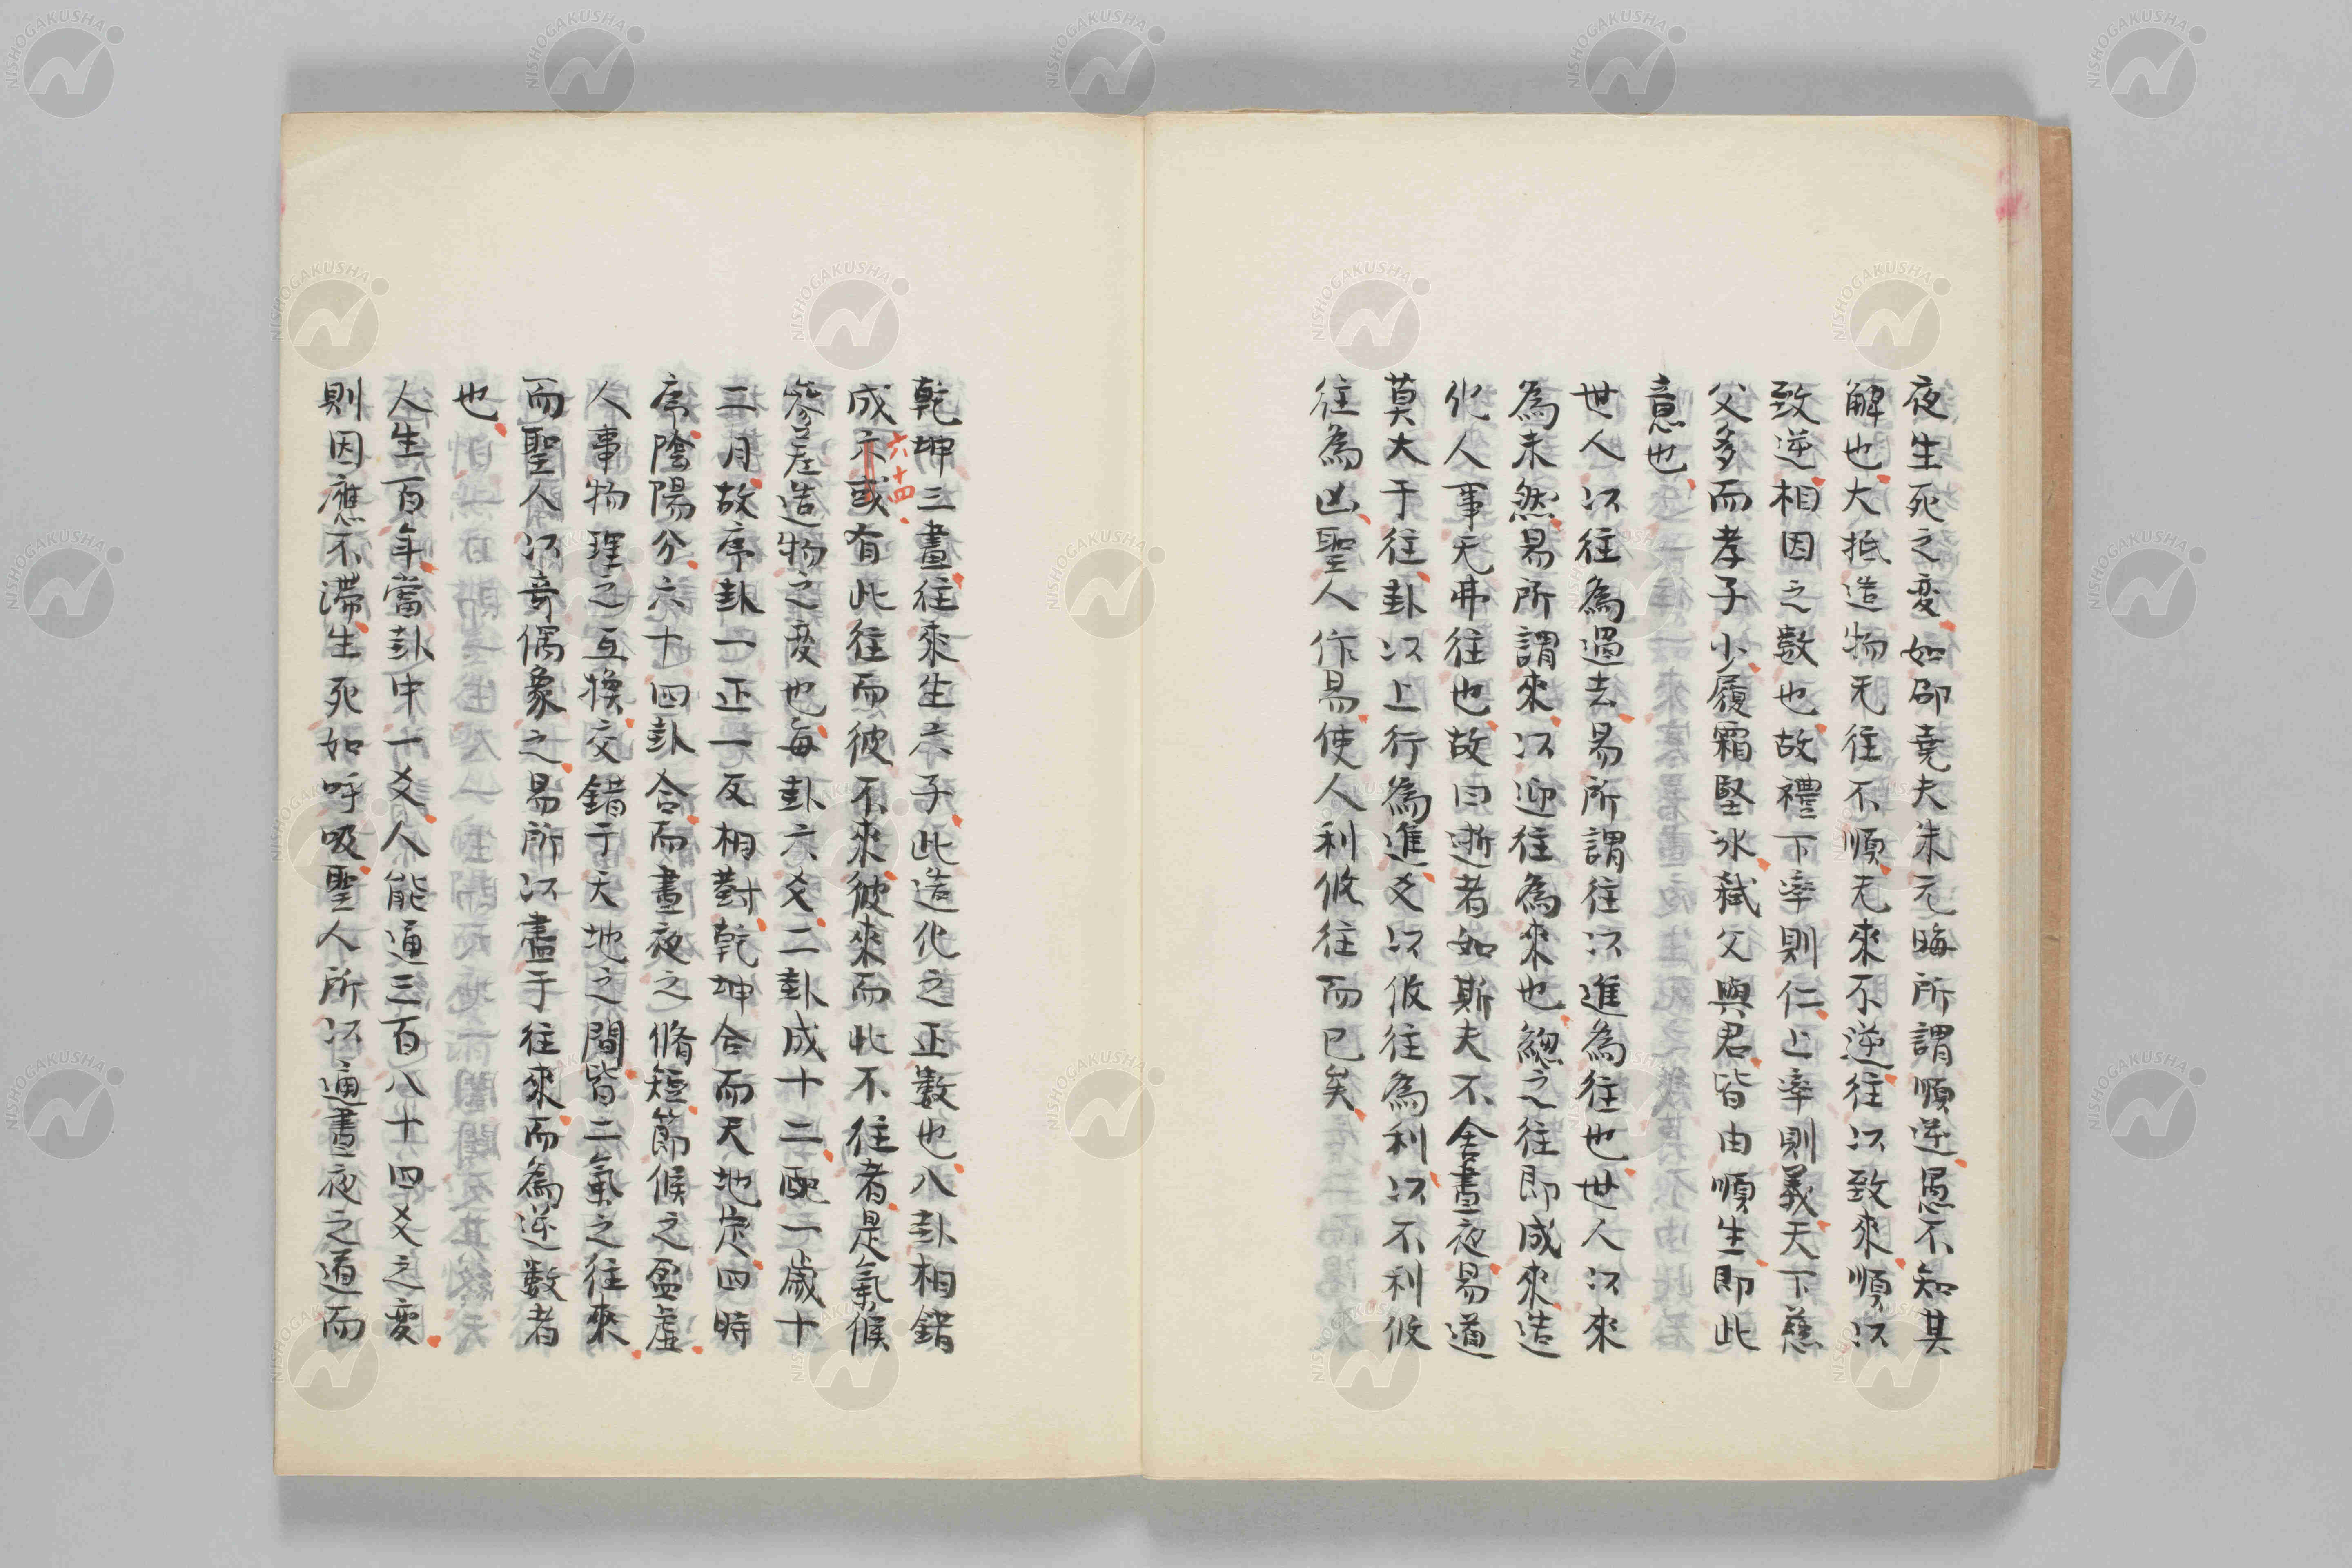 夜生死之変如邵堯夫朱元晦所謂順逆愚不知其
解也大抵造物无往不順无來不逆往以致來順以
致逆相因之数也故禮下率則仁上率則義天下慈
父多而孝子小履霜堅冰弑父與君皆由順生即此
意也
世人以往為過去易所謂往以進為往也世人以來
為未然易所謂來以迎往為來也緫之往即成來造
化人事无非往也故曰逝者如斯夫不舍晝夜易道
莫大于往卦以上行為進爻以攸往為利以不利攸
往為凶聖人作易使人利攸往而已矣
乾坤三畫往來生六子此造化之正数也八卦相錯
成六或有此往而彼不來彼來而此不往者是氣候
六十四
參差造物之変也每卦六爻二卦成十二配一歲十
二月故序卦一正一反相對乾坤合而天地定四時
序陰陽分六十四卦合而晝夜之脩短節候之盈虛
人事物理之互換交錯于天地之間皆二氣之往來
而聖人以竒偶象之易所以盡于往來而為逆数者
也
人生百年當卦中一爻人能通三百八十四爻之変
則因應不滯生死如呼吸聖人所以通晝夜之道而
NISHOGAKUSHA